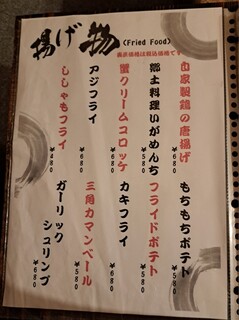 揚げ物
(Fried Food)
表示価格は税込価格です
自家製鶏の唐揚げ
¥680
郷土料理いがめんち
¥580
蟹クリームコロッケ
¥680
アジフライ
¥580
ししゃもフライ
¥480
もちもちポテト
¥580
フライドポテト
¥580
カキフライ
¥680
三角カマンベール
¥580
ガーリックシュリンプ
¥680